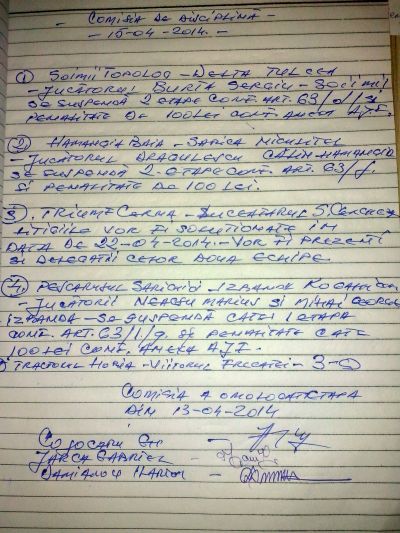 - COMISIA DE DISCIPLINĂ -
- 15-04-2014. -
① SOIMII TOPOLOG - DELTA TULCEA
- JUCĂTORUL BURTĂ SERGIU - SOIMII
SE SUSPENDĂ 2 ETAPE CONF. ART. 63/
PENALITATE DE 100 LEI CONF. ANEXA AJF.
② HAMANGIA BAIA - SARICA NICULITEL
- JUCĂTORUL DRAGULESCU CĂLIN HAMANGIA
SE SUSPENDĂ 2 ETAPE CONF. ART. 63/f.
SI PENALITATE DE 100 LEI.
3. TRIUMF CERNA - LUCEAFARUL S. CERCHEZ
LITIGIILE VOR FI SOLUTIONATE IM
DATA DE 22-04-2014 - VOR FI PREZENTI
SI DELEGATII CELOR DOUA ECHIPE
4. PESCARUSUL SARICHIOI - IZBANDA
- JUCĂTORII NEAGSU MARIUS SI MIHAI GEORGE
IZBANDA - SE SUSPENDĂ CATE 1 ETAPA
CONF. ART. 63/1/g. SE PENALITATE CATE
100 LEI CONF. ANEXA AJF.
TRACTORUL HORIA - VIITORUL FRECATEI - 3-0
COMISIA A OMOLOGAT ETAPA
DIN 13-04-2014
COJOCARU GH -
JARCA GABRIEL -
DAMIANOV MARIAN -